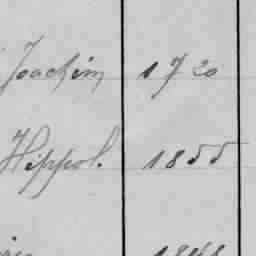 Joachim 1720
Hippol. 1855